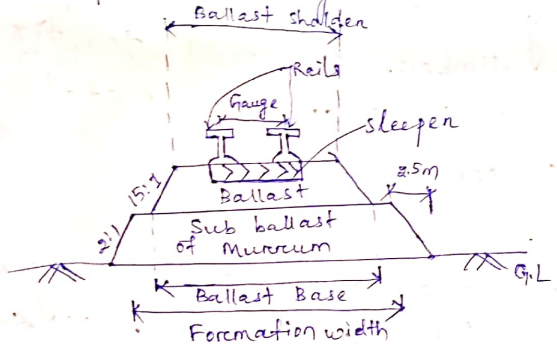 Ballast sholden
Rails
Gauge
sleepen
2.5m
15:1
Ballast
2:1
Sub ballast
of Murrum
G.L
Ballast Base
Foremation width